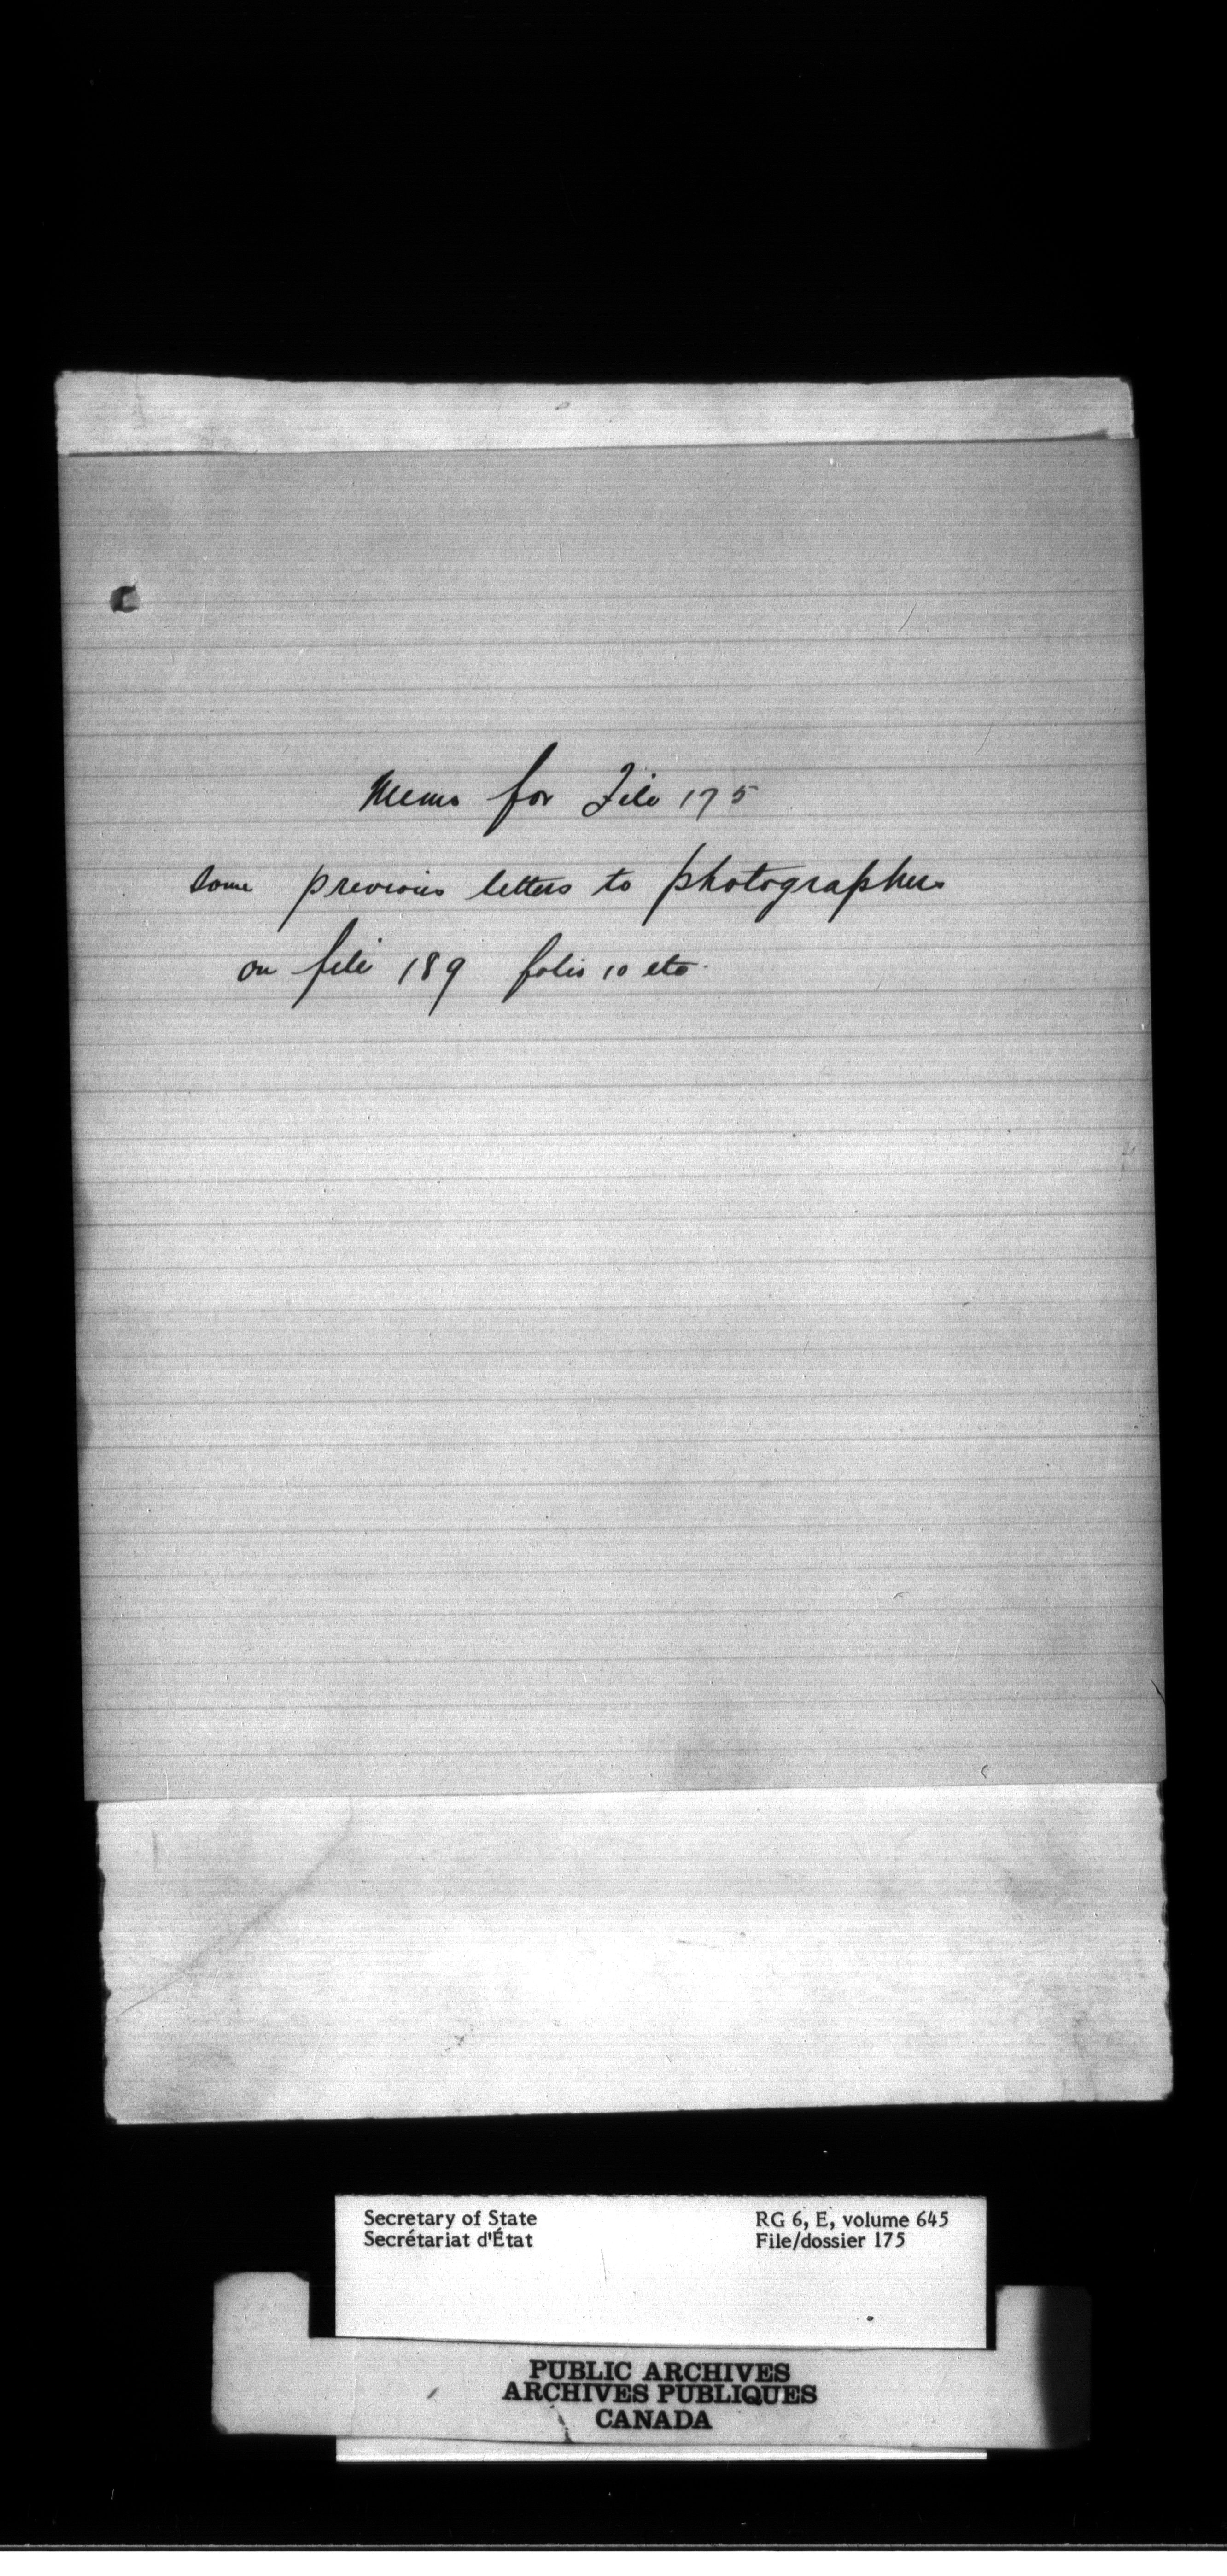 Memo for File 175
some previous letters to photographers
on file 189 folio 10 etc.
Secretary of State
Secrétariat d'État
RG 6, E, volume 645
File/dossier 175
PUBLIC ARCHIVES
ARCHIVES PUBLIQUES
CANADA